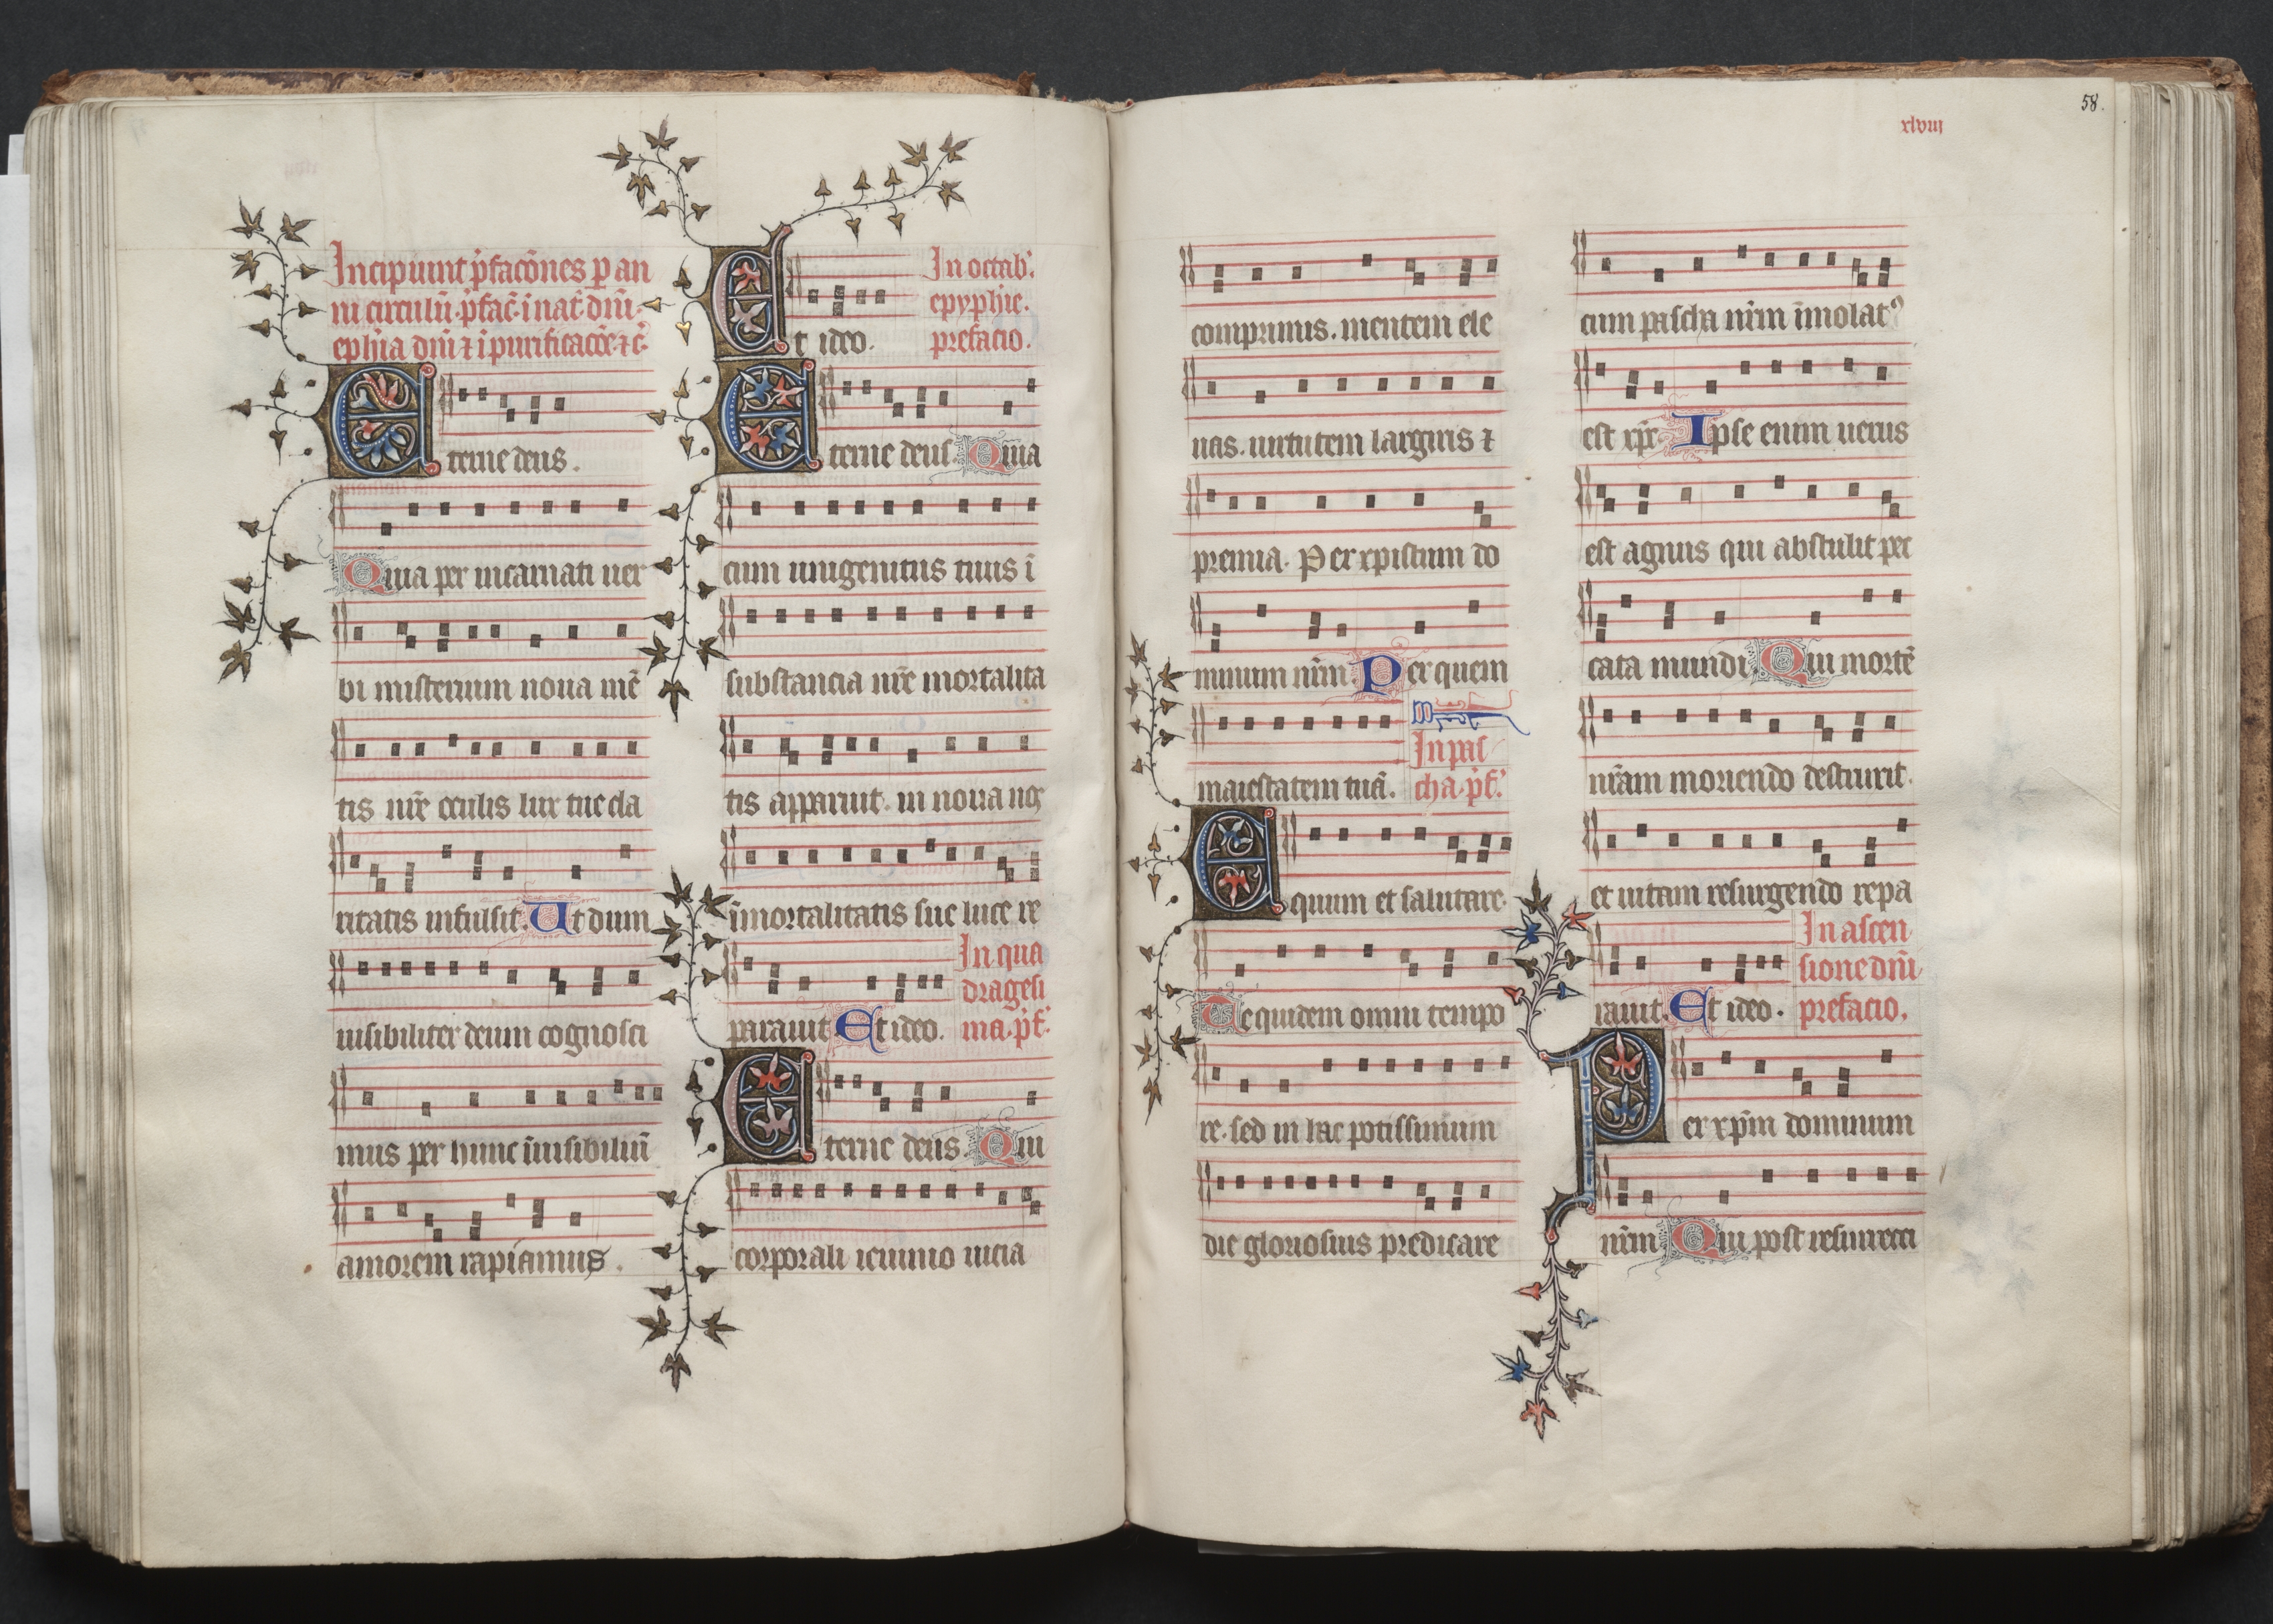 Incipiunt p̄facōnes p an
ni circulū. p̄fac̄. i nat̄. dn̄i.
ephīa dn̄i ⁊ i purificacōe ⁊ c̄.
Eterne deus.
Quia per incarnati uer
bi misterium noua mē
tis nr̄e oculis lux tue cla
ritatis infulsit. Ut dum
uisibiliter deum cognosci
mus per hunc īuisibiliū
amorem rapiamus.
Et ideo.
In octab'.
epyphīe.
prefacio.
Eterne deus. Quia
cum unigenitus tuus ī
substancia nr̄e mortalita
tis apparuit. in noua nos
īmortalitatis sue luce re
parauit. Et ideo.
In qua
dragesi
ma. p̄f.
Eterne deus. Qui
corporali ieiunio uicia
58.
xlviij
comprimis. mentem ele
uas. uirtutem largiris ⁊
premia. Per xpistum do
minum nr̄m. Per quem
maiestatem tuā.
In pas
cha. p̄f.
Equum et salutare.
Te quidem omni tempo
re. sed in hac potissimum
die gloriosius predicare
cum pascha nr̄m īmolatꝰ
est xp̄c. Ipse enim uerus
est agnus qui abstulit pec
cata mundi. Qui mortē
nr̄am moriendo destruxit.
et uitam resurgendo repa
rauit. Et ideo.
In ascen
sione dn̄i
prefacio.
Per xp̄m dominum
nr̄m. Qui post resurrecti